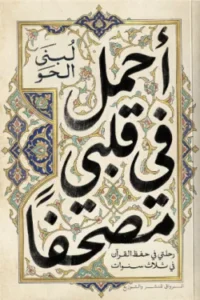 أحمل
في
قلبي
مصحفاً
لُبنَى
الحَو
رحلتي في حفظ القرآن
في ثلاث سنوات